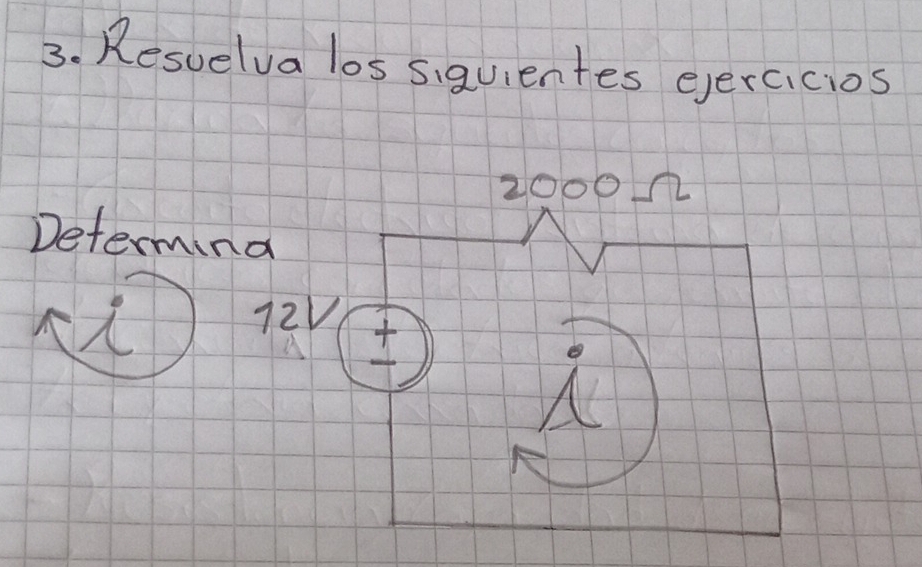 3. Resuelva los siguientes ejercicios
2000 Ω
Determina
i
12V
+
-
i